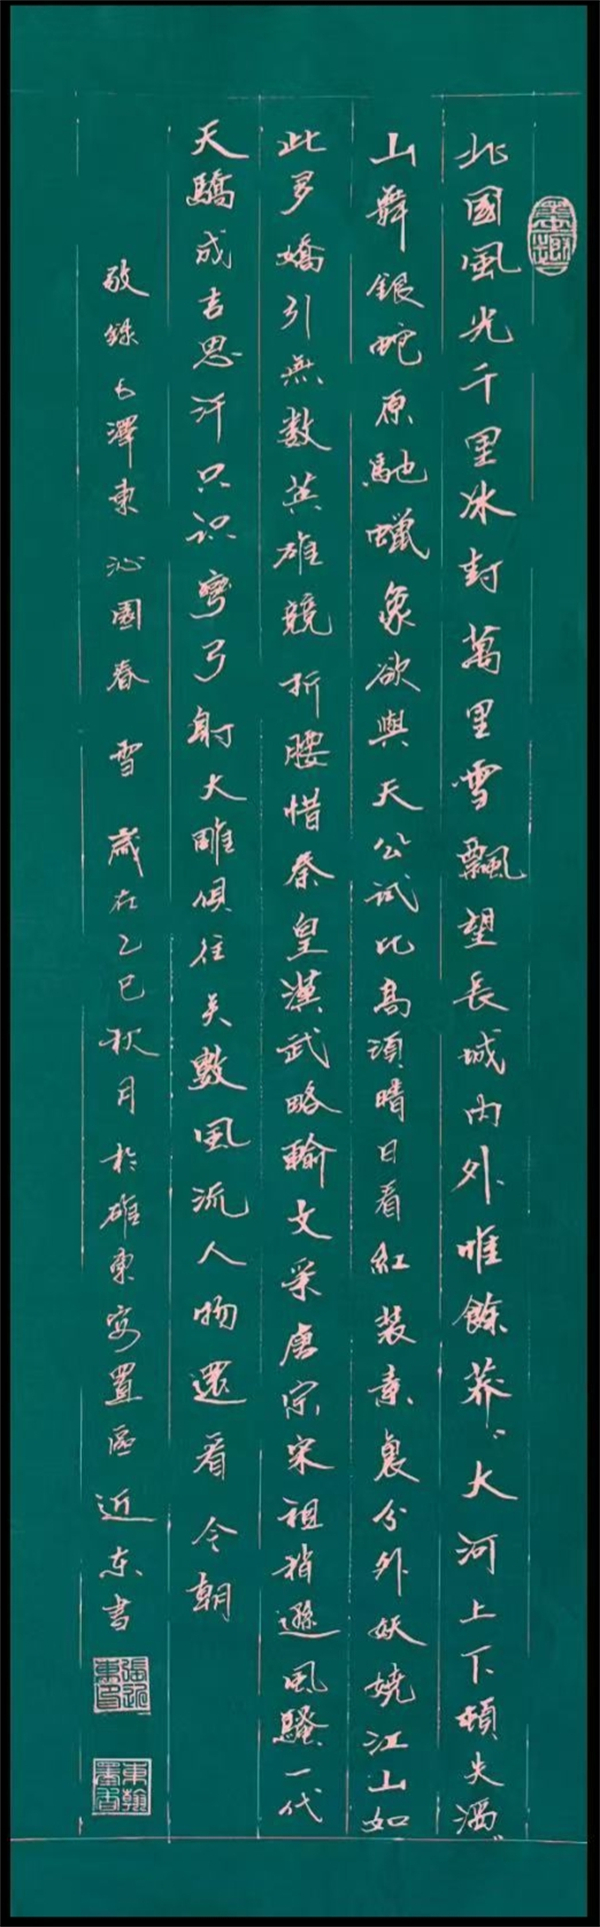 墨趣
北國風光千里冰封萬里雪飄望長城內外唯餘莽〻大河上下頓失滔〻
山舞銀蛇原馳蠟象欲與天公試比高須晴日看紅裝素裹分外妖嬈江山如
此多嬌引無數英雄競折腰惜秦皇漢武略輸文采唐宗宋祖稍遜風騷一代
天驕成吉思汗只识彎弓射大雕俱往矣數風流人物還看今朝
敬錄毛澤東沁園春 雪 歲在乙巳秋月於雄東安置區 近东書
張近東印